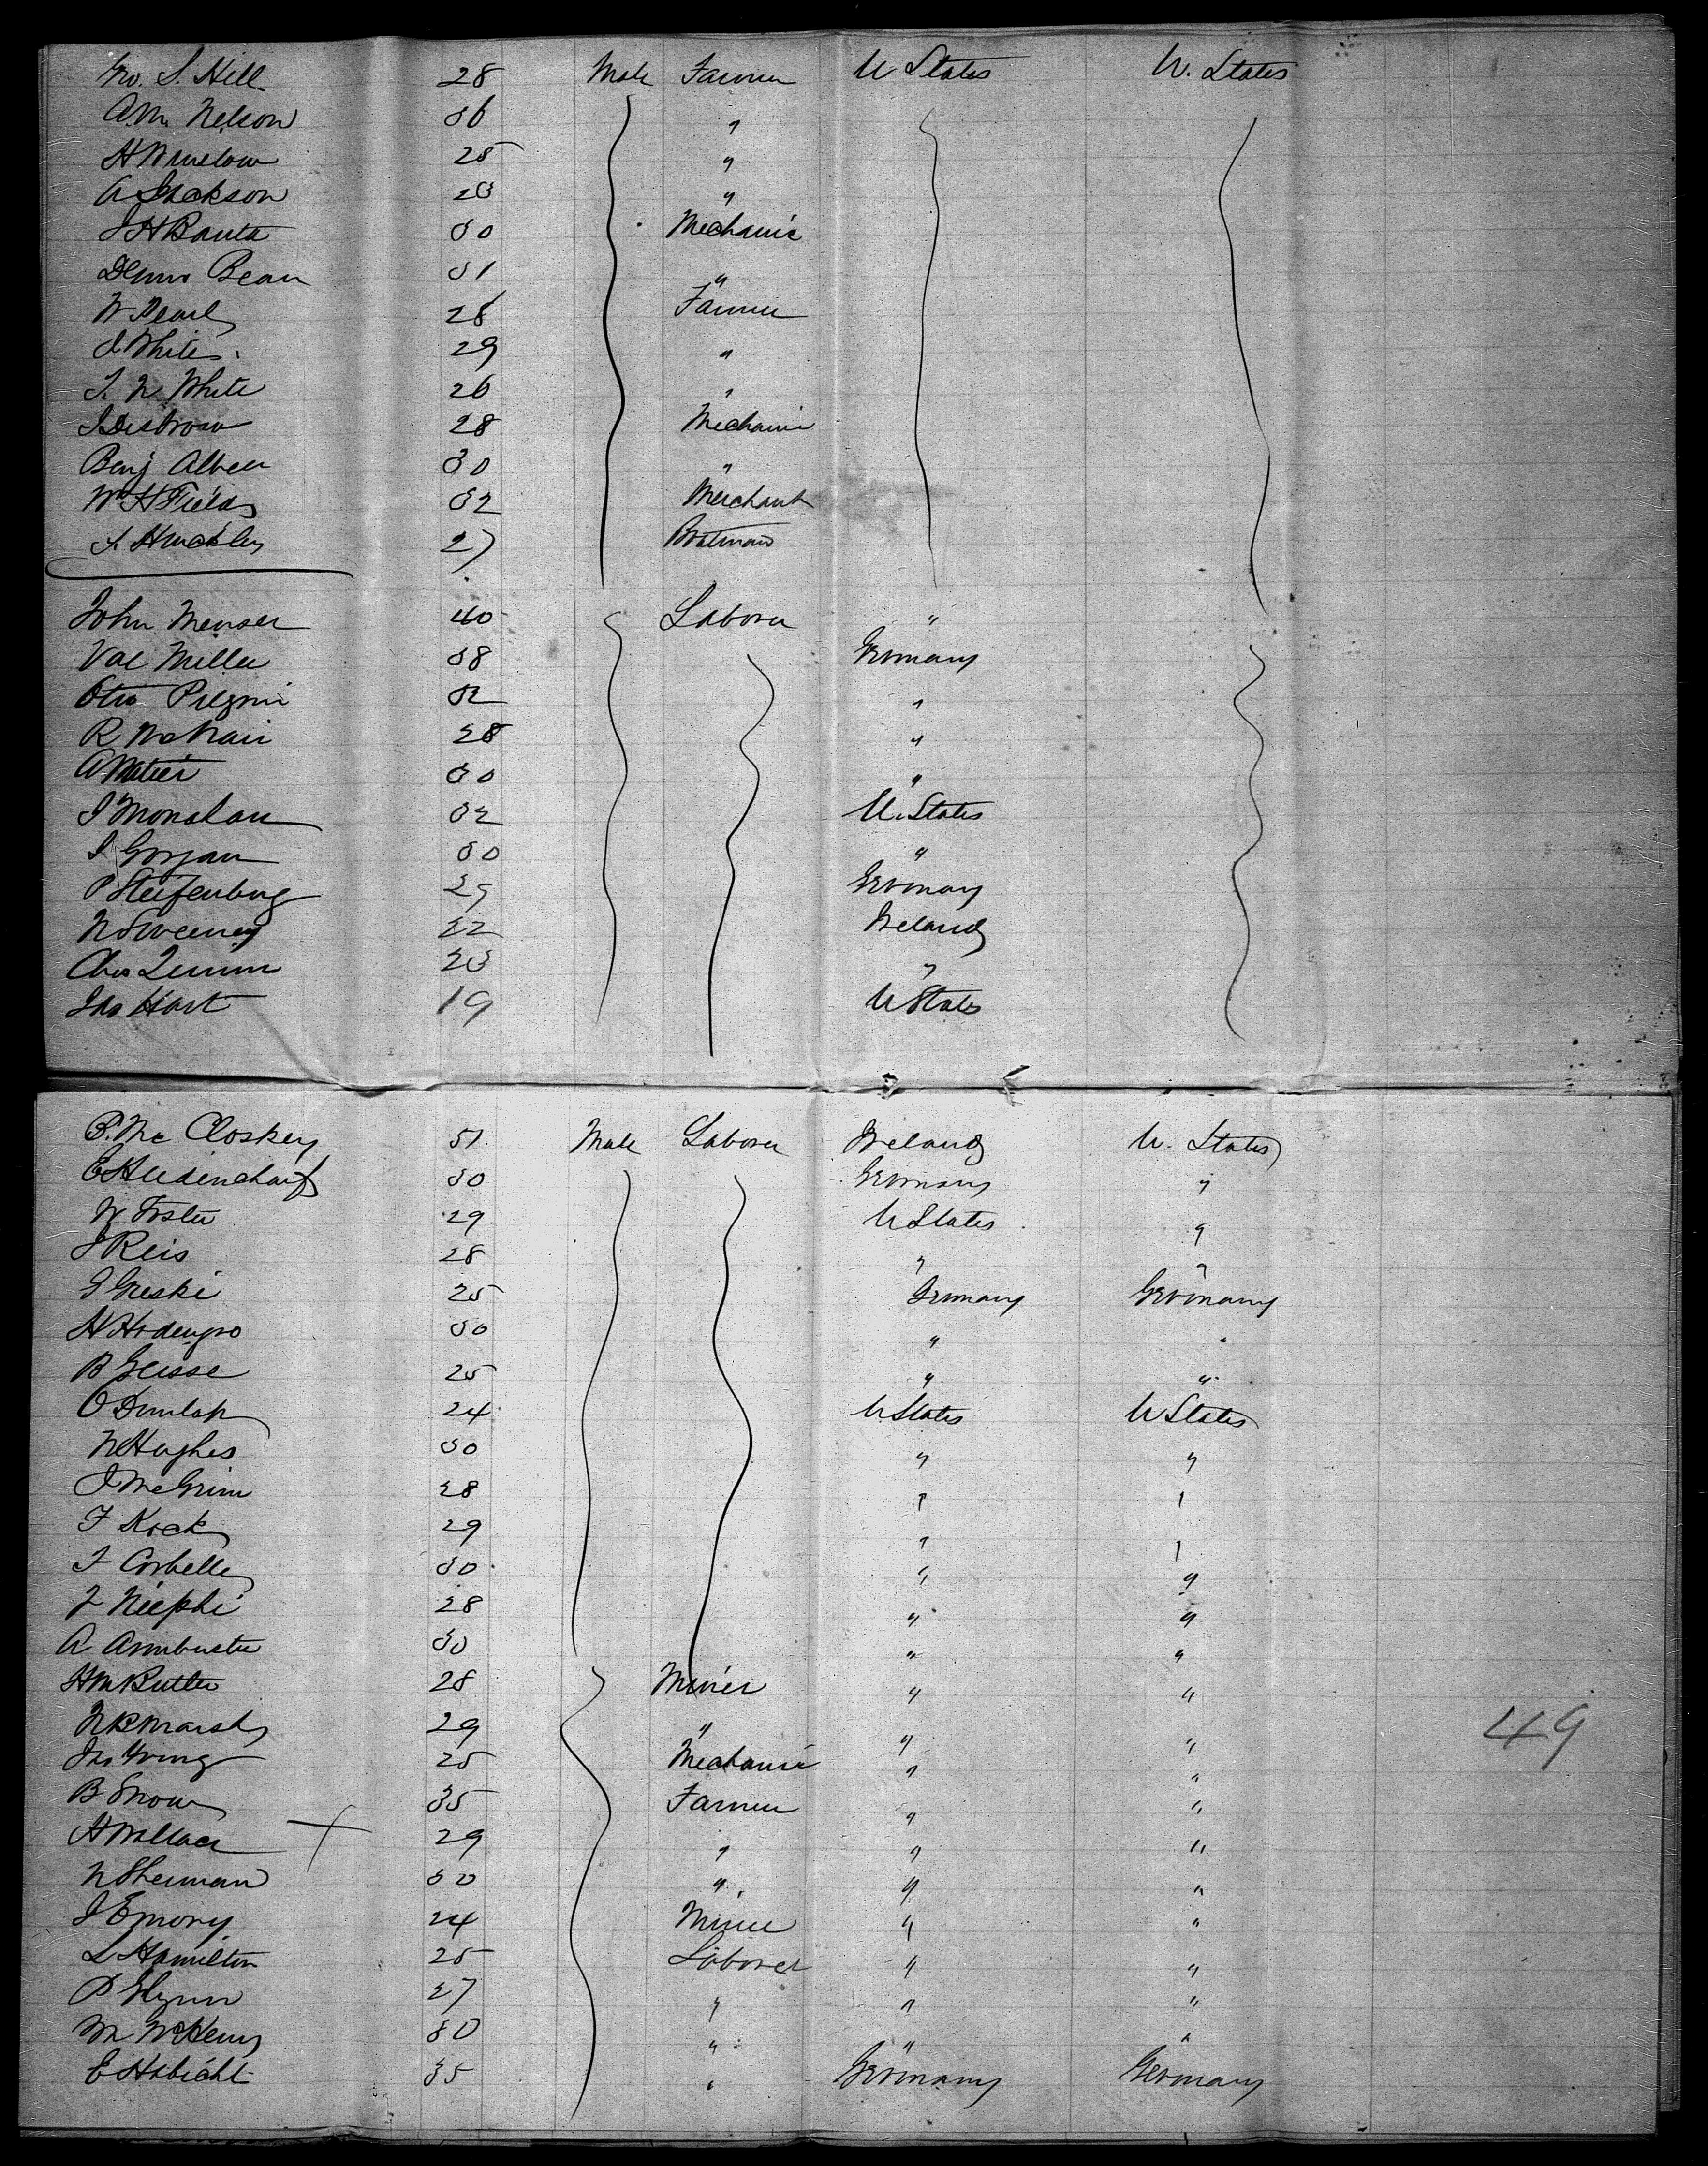 Geo. S. Hill 28 Male Farmer U States U. States
A.M. Nelson 36 "
H Winslow 25 "
A Jackson 23 "
J H Banta 30 Mechanic
Bean 31 "
W Pearl 28 Farmer
J White 29 "
T. N White 26 "
J Disbrow 28 Mechanic
Benj Albeer 30 "
Wm H Fields 32 Merchant
J. Huckley 27 Boatman
John Menser 40 Laborer "
Val Miller 38 Germany
Otto Pilgrim 32 "
R McNair 28 "
A Matier 30 "
J Monahan 32 U. States
J Gorjan 30 "
P Steifenburg 29 Germany
N Sweeney 22 Ireland
Chas Quinn 23 "
Jno Hart 19 U States
P. Mc Closkey 51 Male Laborer Ireland U. States
E Heidencharf 30 Germany "
W Foster 29 U States "
J Reis 28 " "
J Greski 25 Germany Germany
H Hodengro 30 " "
B Geisse 25 " "
O Dunlap 24 U States U States
N Hughes 30 " "
J McGrim 28 " "
F Kock 29 " "
F Corbelle 30 " "
J Niephi 28 " "
A Armbuster 30 " "
H M Butler 28 Miner " "
N R Marsh 29 " " "
Jno Young 25 Mechanic " "
49
B Snow 35 Farmer " "
H Wallace 29 " " "
N Sherman 30 " " "
J Emory 24 Miner " "
L Hamilton 25 Laborer " "
P Glynn 27 " " "
M McHenry 30 " " "
E Habicht 35 " Germany Germany